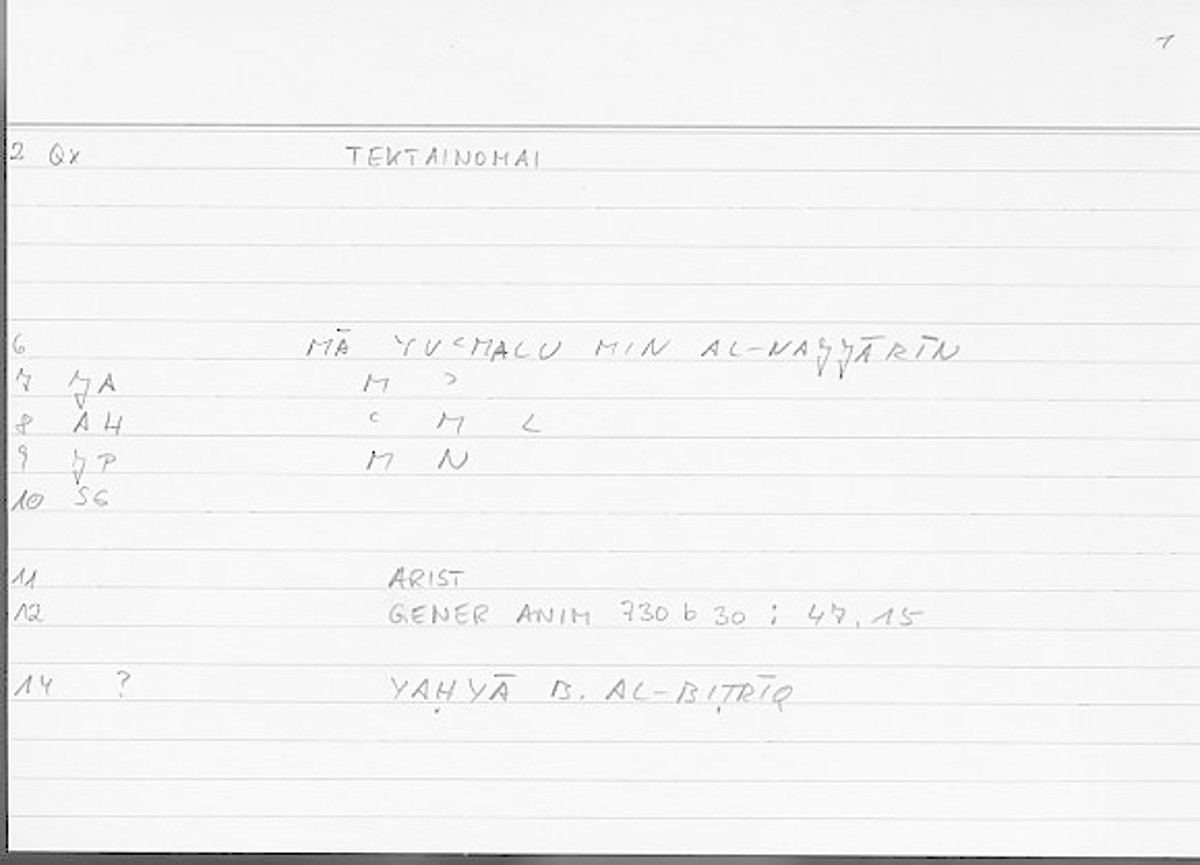 1
2 Qx TEKTAINOMAI
6 MĀ YUʿMALU MIN AL-NAǦǦĀRĪN
7 ǦA M ʾ
8 AH ʿ M L
9 ǦP M N
10 SG
11 ARIST
12 GENER ANIM 730 b 30 ; 47.15
14 ? YAḤYĀ B. AL-BIṬRĪQ